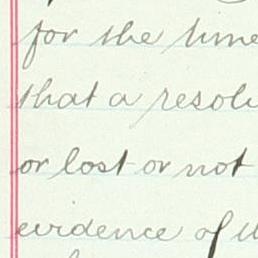 for the time
that a resolu
or lost or not
evidence of